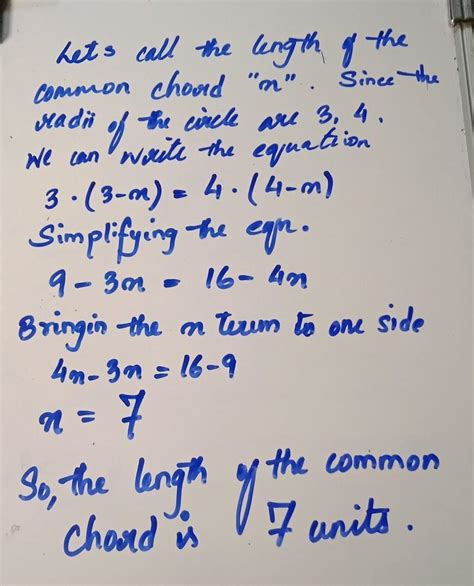 Let's call the length of the
common chord "n". Since the
radii of the circle are 3, 4.
We can write the equation
3 · (3-n) = 4 · (4-n)
Simplifying the eqn.
9 - 3n = 16 - 4n
Bringin the n term to one side
4n - 3n = 16 - 9
n = 7
So, the length of the common
chord is 7 units.